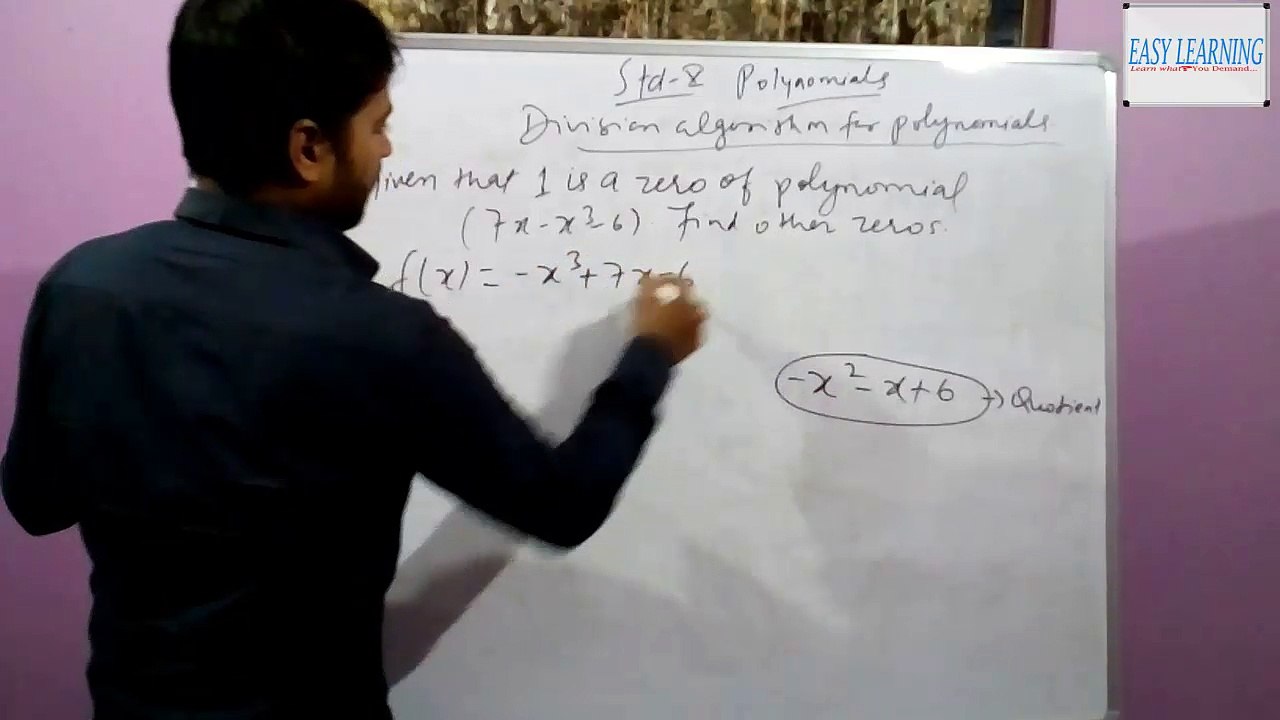 EASY LEARNING
Learn what You Demand...
Std-8 Polynomials
Division algorithm for polynomials
iven that 1 is a zero of polynomial
(7x-x³-6). Find other zeros.
f(x) = -x³+7x-6
-x²-x+6 → Quotient